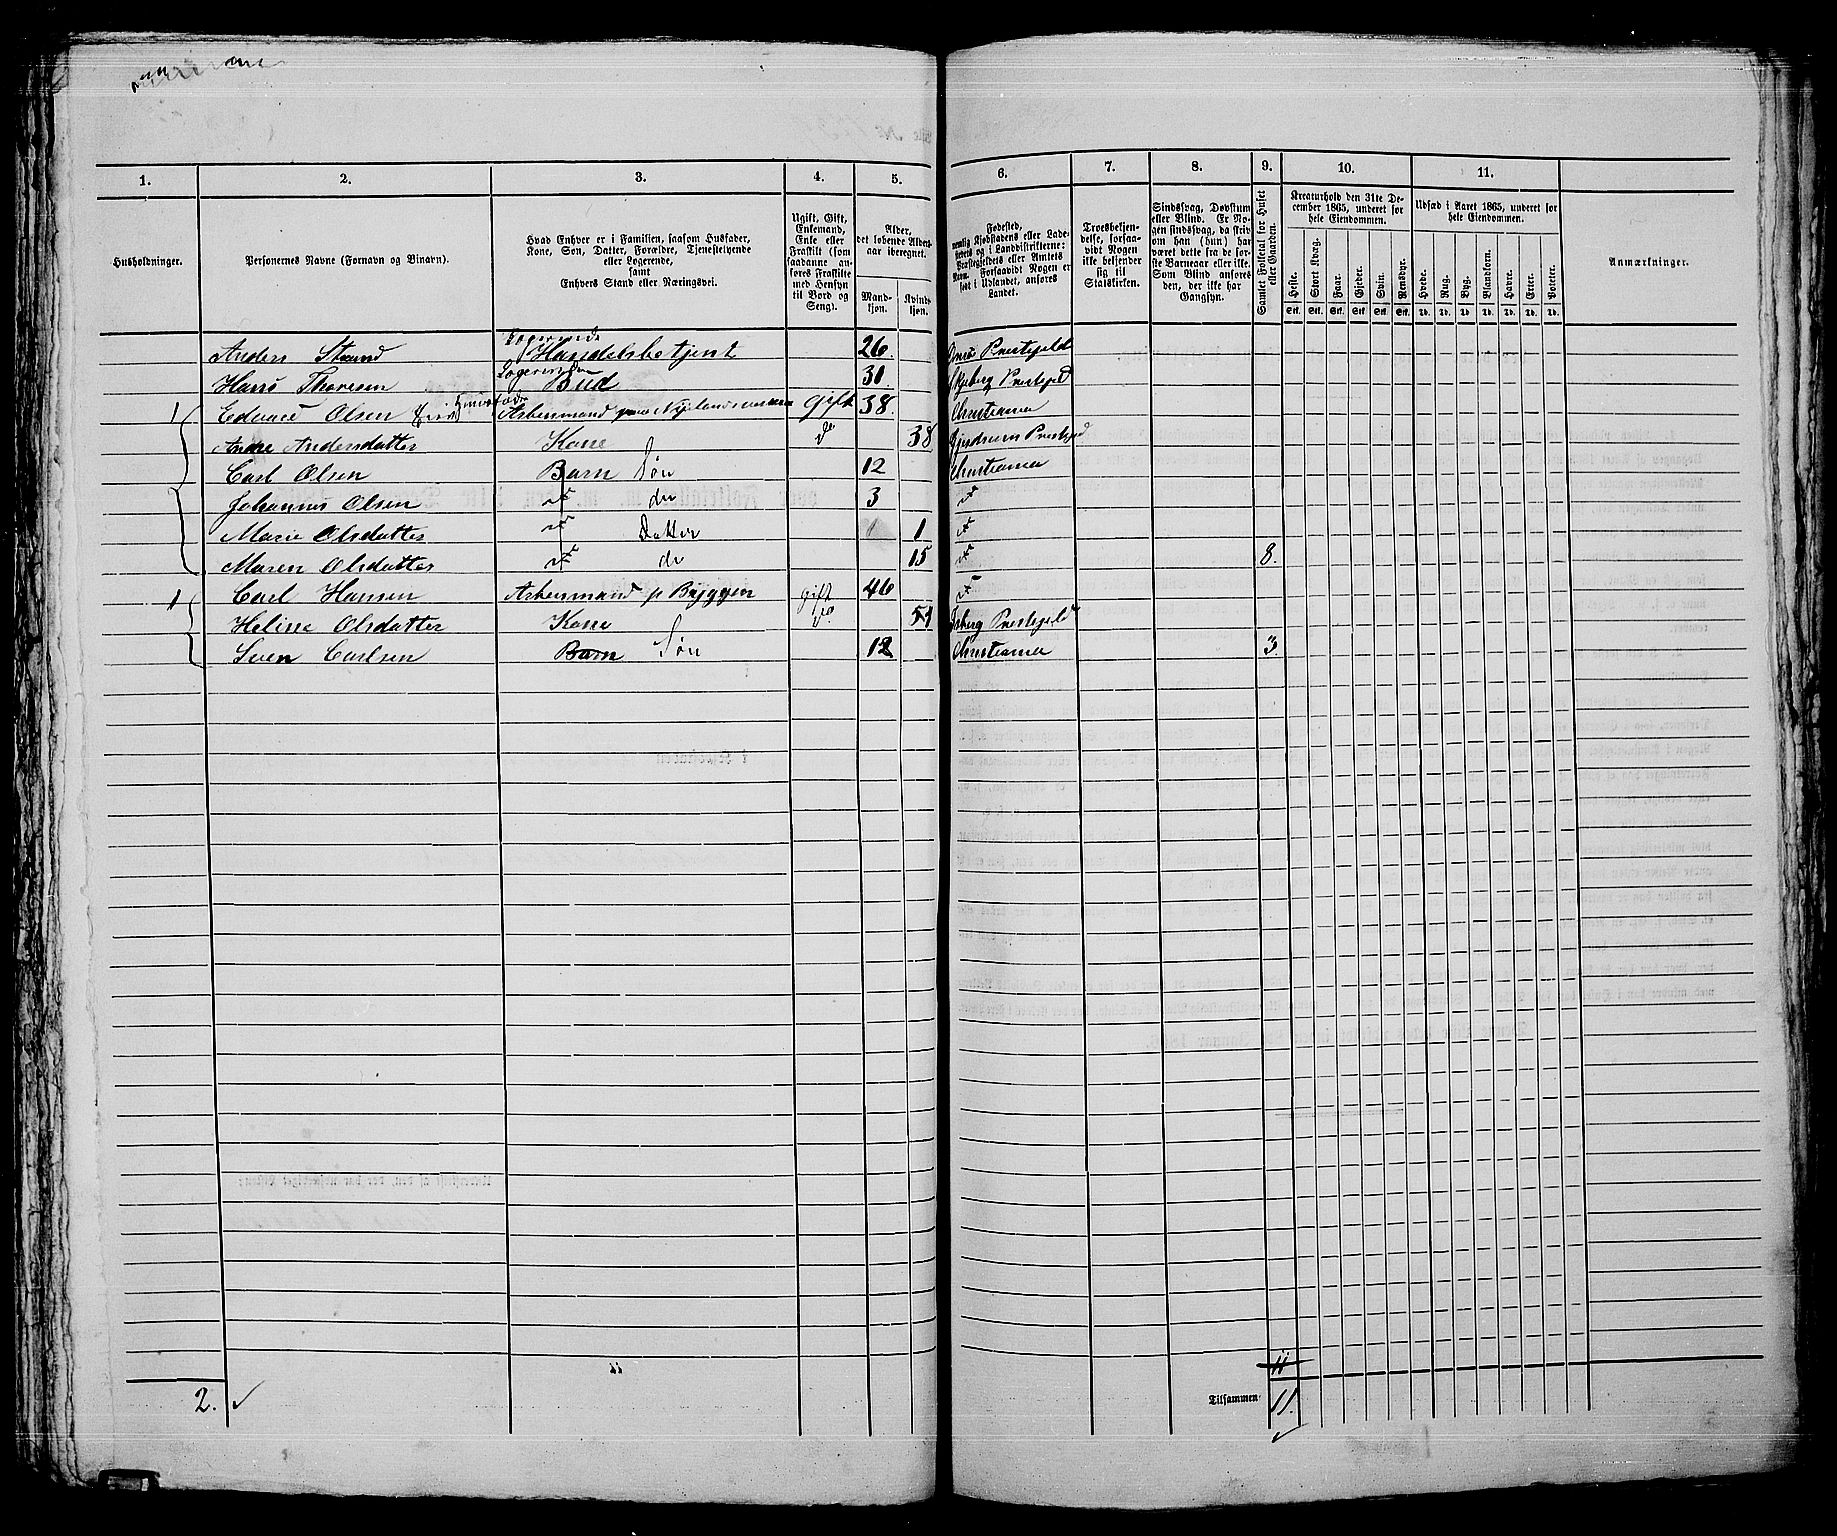 1. 2. 3. 4. 5. 6. 7. 8. 9. 10. 11.
Husholdninger.
Personernes Navne (Fornavn og Binavn).
Hvad Enhver er i Familien, saasom Husfader,
Kone, Søn, Datter, Forældre, Tjenestetyende
eller Logerende,
samt
Enhvers Stand eller Næringsvei.
Ugift, Gift,
Enkemand,
Enke eller
Fraskilt (som
saadanne anføres Fraskilte
med Hensyn
til Bord og
Seng).
Alder,
det løbende Aldersaar iberegnet.
Mandkjøn.
Kvindekjøn.
Fødested,
nemlig Kjøbstadens eller Ladestedets og i Landdistrikterne:
Præstegjeldets eller Amtets
Navn. Forsaavidt Nogen er
født i Udlandet, anføres
Landet.
Troesbekjendelse, forsaavidt Nogen
ikke bekjender
sig til
Statskirken.
Sindssvag, Døvstum
eller Blind. Er Nogen sindssvag, da skriv
om han (hun) har
været dette fra de første Barneaar eller ikke.
Som Blind anføres
den, der ikke har
Gangsyn.
Samlet Folketal for Huset
eller Gaarden.
Kreaturhold den 31te December 1865, underet for
hele Eiendommen.
Heste. Stort Kvæg. Faar. Gjeder. Svin. Rensdyr.
Stk. Stk. Stk. Stk. Stk. Stk.
Udsæd i Aaret 1865, underet for
hele Eiendommen.
Hvede. Rug. Byg. Blandkorn. Havre. Erter. Poteter.
Td. Td. Td. Td. Td. Td. Td.
Anmærkninger.
Logerende
Anders Strand Handelsbetjent 26. Præstegjeld
Logerende
Hans Thoresen Bud 31 Skjeberg Præstegjeld
1 Edvard Olsen Arbeidsmand gift 38. Christiania
Andersdatter Kone do 38 Præstegjeld
Carl Olsen Barn Søn 12 Christiania
Johannes Olsen do 3
Marie Olsdatter Datter 1
Maren Olsdatter do 15 8.
1 Carl Hansen Arbeidsmand p Bryggen gift 46
Heline Olsdatter Kone do. 51 Præstegjeld
Sven Carlsen Barn Søn 12 Christiania 3.
11
2. Tilsammen 11.